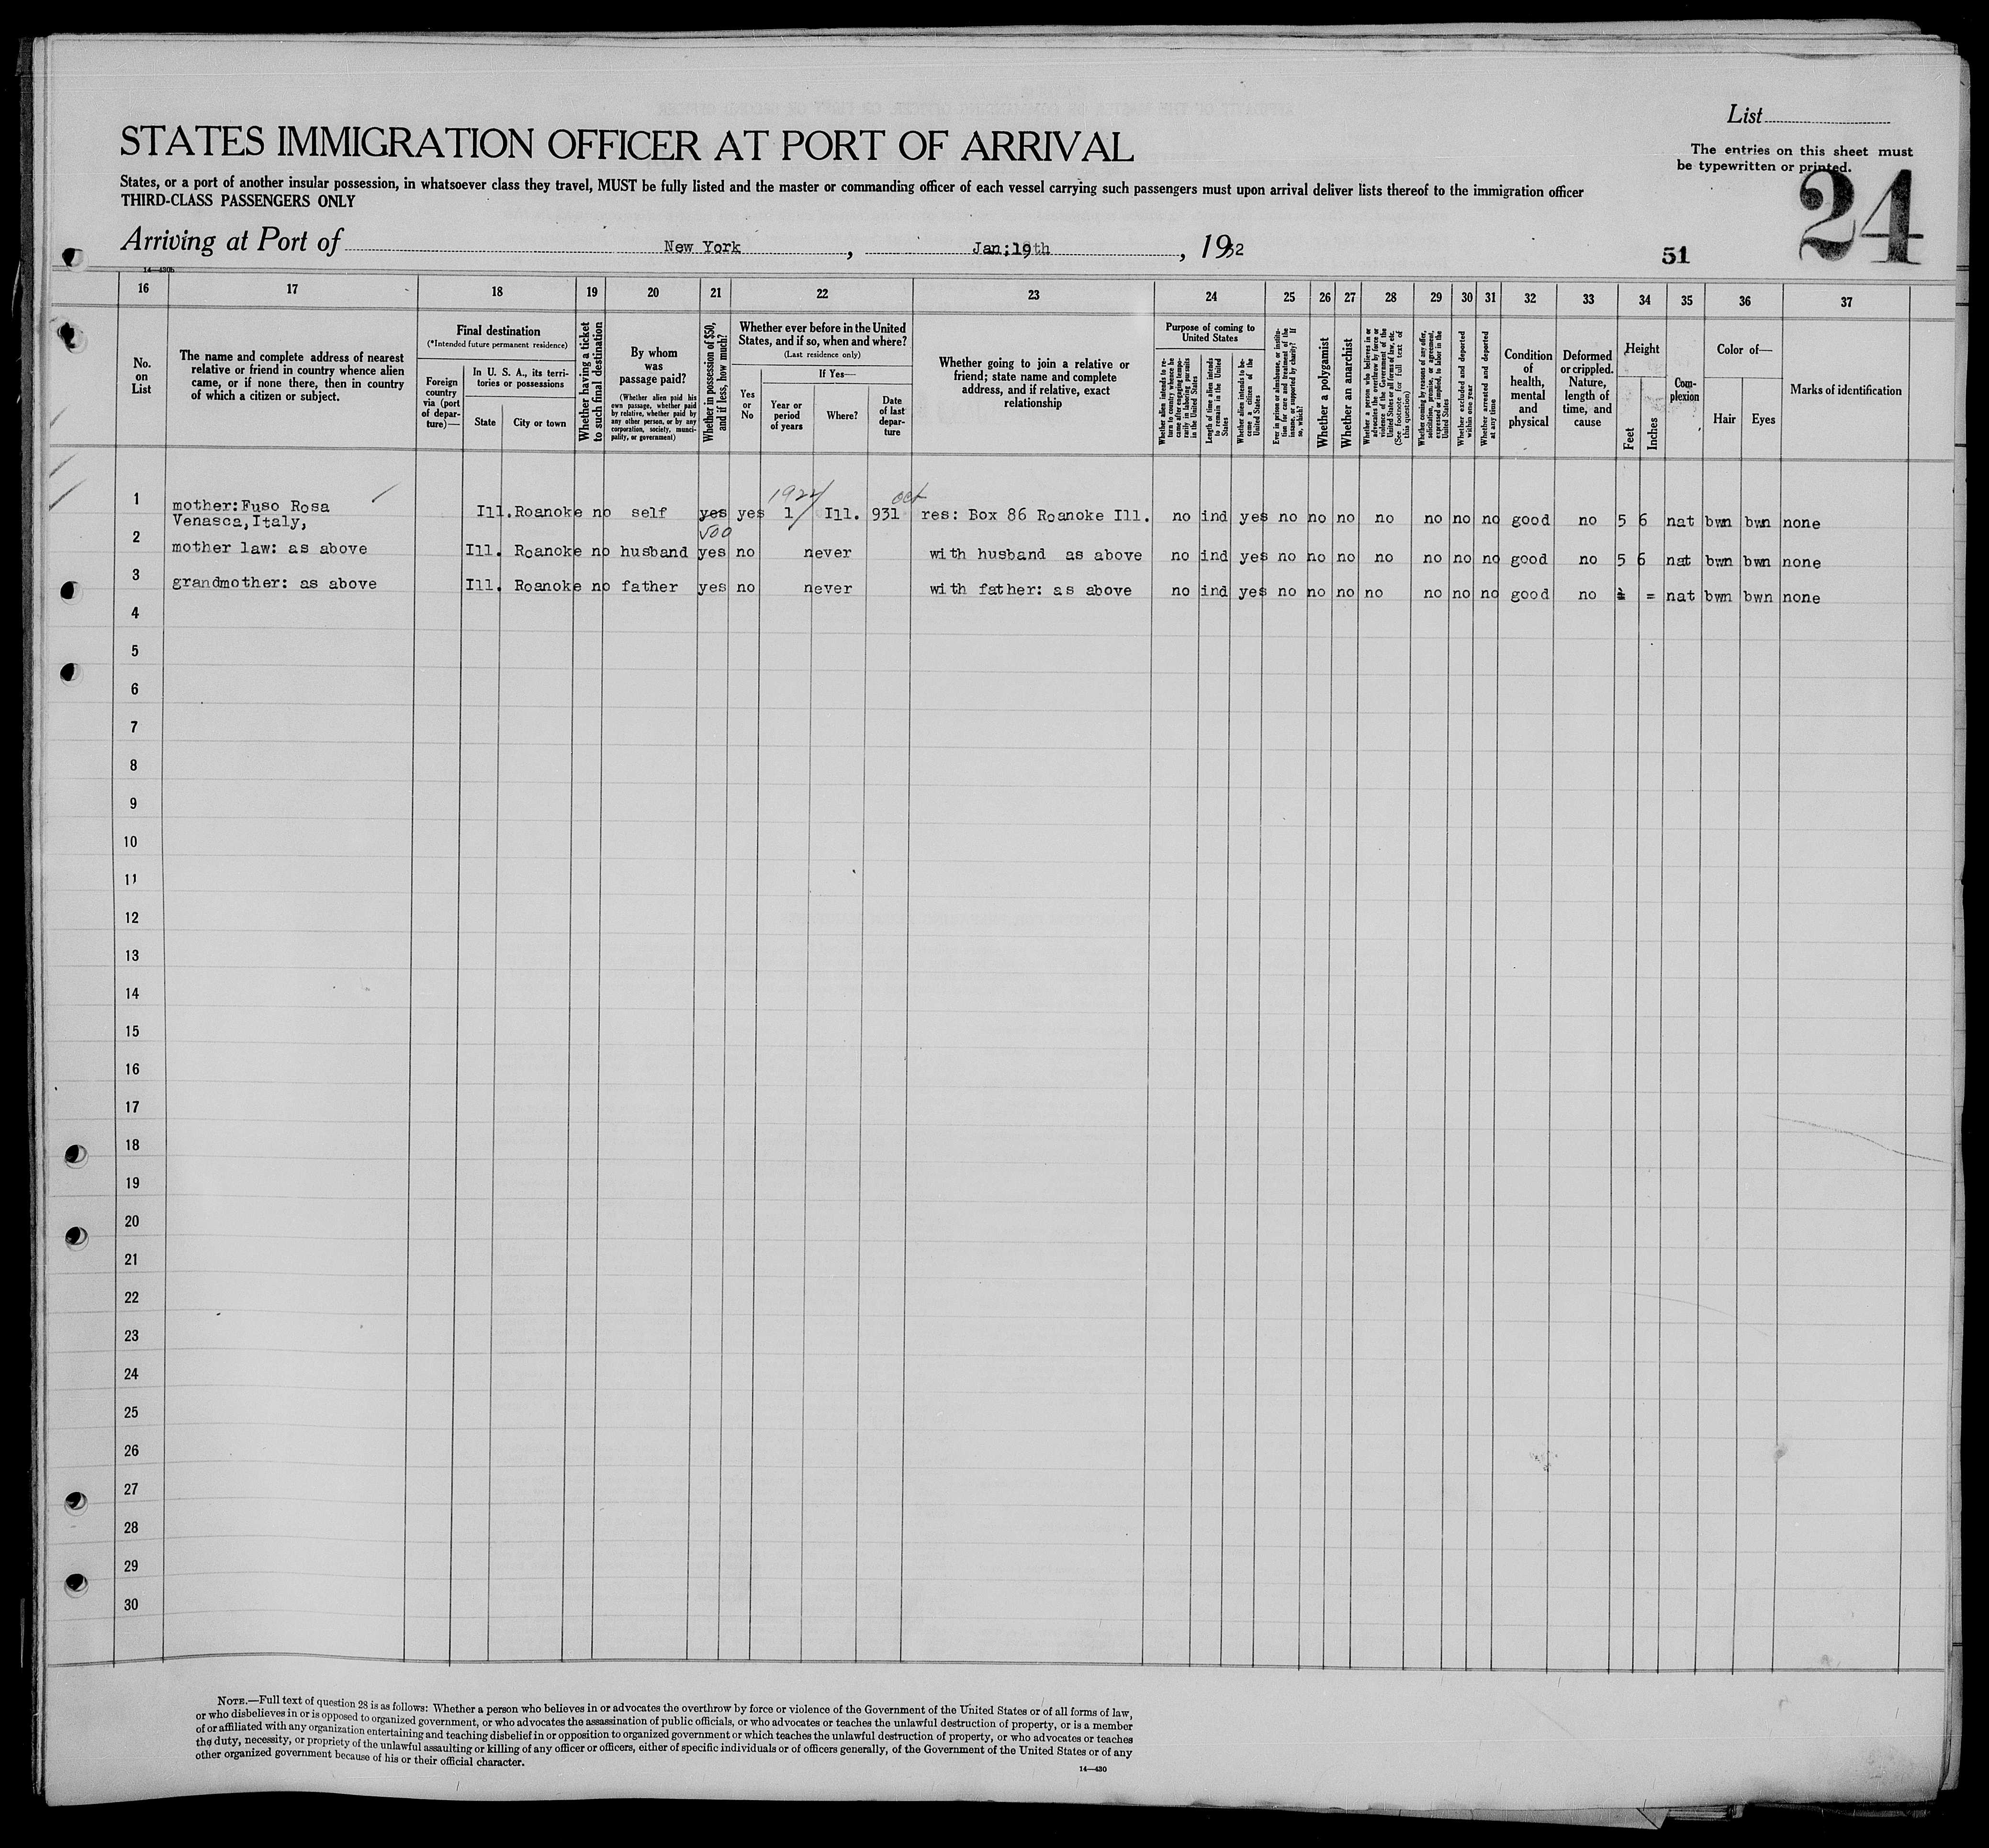 List
STATES IMMIGRATION OFFICER AT PORT OF ARRIVAL
The entries on this sheet must
be typewritten or printed.
States, or a port of another insular possession, in whatsoever class they travel, MUST be fully listed and the master or commanding officer of each vessel carrying such passengers must upon arrival deliver lists thereof to the immigration officer
THIRD-CLASS PASSENGERS ONLY
24
Arriving at Port of New York, Jan;19th, 1932
51
14—430b
16 17 18 19 20 21 22 23 24 25 26 27 28 29 30 31 32 33 34 35 36 37
No.
on
List
The name and complete address of nearest
relative or friend in country whence alien
came, or if none there, then in country
of which a citizen or subject.
Final destination
(*Intended future permanent residence)
Foreign
country
via (port
of depar-
ture)—
In U. S. A., its terri-
tories or possessions
State
City or town
Whether having a ticket
to such final destination
By whom
was
passage paid?
(Whether alien paid his
own passage, whether paid
by relative, whether paid by
any other person, or by any
corporation, society, munici-
pality, or government)
Whether in possession of $50,
and if less, how much?
Whether ever before in the United
States, and if so, when and where?
(Last residence only)
Yes
or
No
If Yes—
Year or
period
of years
Where?
Date
of last
depar-
ture
Whether going to join a relative or
friend; state name and complete
address, and if relative, exact
relationship
Purpose of coming to
United States
Whether alien intends to re-
turn to country whence he
came after engaging tempo-
rarily in laboring pursuits
in the United States
Length of time alien intends
to remain in the United
States
Whether alien intends to be-
come a citizen of the
United States
Ever in prison or almshouse, or institu-
tion for care and treatment of the
insane, or supported by charity? If
so, which?
Whether a polygamist
Whether an anarchist
Whether a person who believes in or
advocates the overthrow by force or
violence of the Government of the
United States or all forms of law, etc.
(See footnote for full text of
this question)
Whether coming by reasons of any offer,
solicitation, promise, or agreement,
expressed or implied, to labor in the
United States
Whether excluded and deported
within one year
Whether arrested and deported
at any time
Condition
of
health,
mental
and
physical
Deformed
or crippled.
Nature,
length of
time, and
cause
Height
Feet
Inches
Com-
plexion
Color of—
Hair
Eyes
Marks of identification
1922 oct
1 mother:Fuso Rosa Ill. Roanoke no self yes yes 1 Ill. 931 res: Box 86 Roanoke Ill. no ind yes no no no no no no no good no 5 6 nat bwn bwn none
Venasca,Italy,
500
2 mother law: as above Ill. Roanoke no husband yes no never with husband as above no ind yes no no no no no no no good no 5 6 nat bwn bwn none
3 grandmother: as above Ill. Roanoke no father yes no never with father: as above no ind yes no no no no no no no good no = nat bwn bwn none
4
5
6
7
8
9
10
11
12
13
14
15
16
17
18
19
20
21
22
23
24
25
26
27
28
29
30
NOTE.—Full text of question 28 is as follows: Whether a person who believes in or advocates the overthrow by force or violence of the Government of the United States or of all forms of law,
or who disbelieves in or is opposed to organized government, or who advocates the assassination of public officials, or who advocates or teaches the unlawful destruction of property, or is a member
of or affiliated with any organization entertaining and teaching disbelief in or opposition to organized government or which teaches the unlawful destruction of property, or who advocates or teaches
the duty, necessity, or propriety of the unlawful assaulting or killing of any officer or officers, either of specific individuals or of officers generally, of the Government of the United States or of any
other organized government because of his or their official character.
14—430